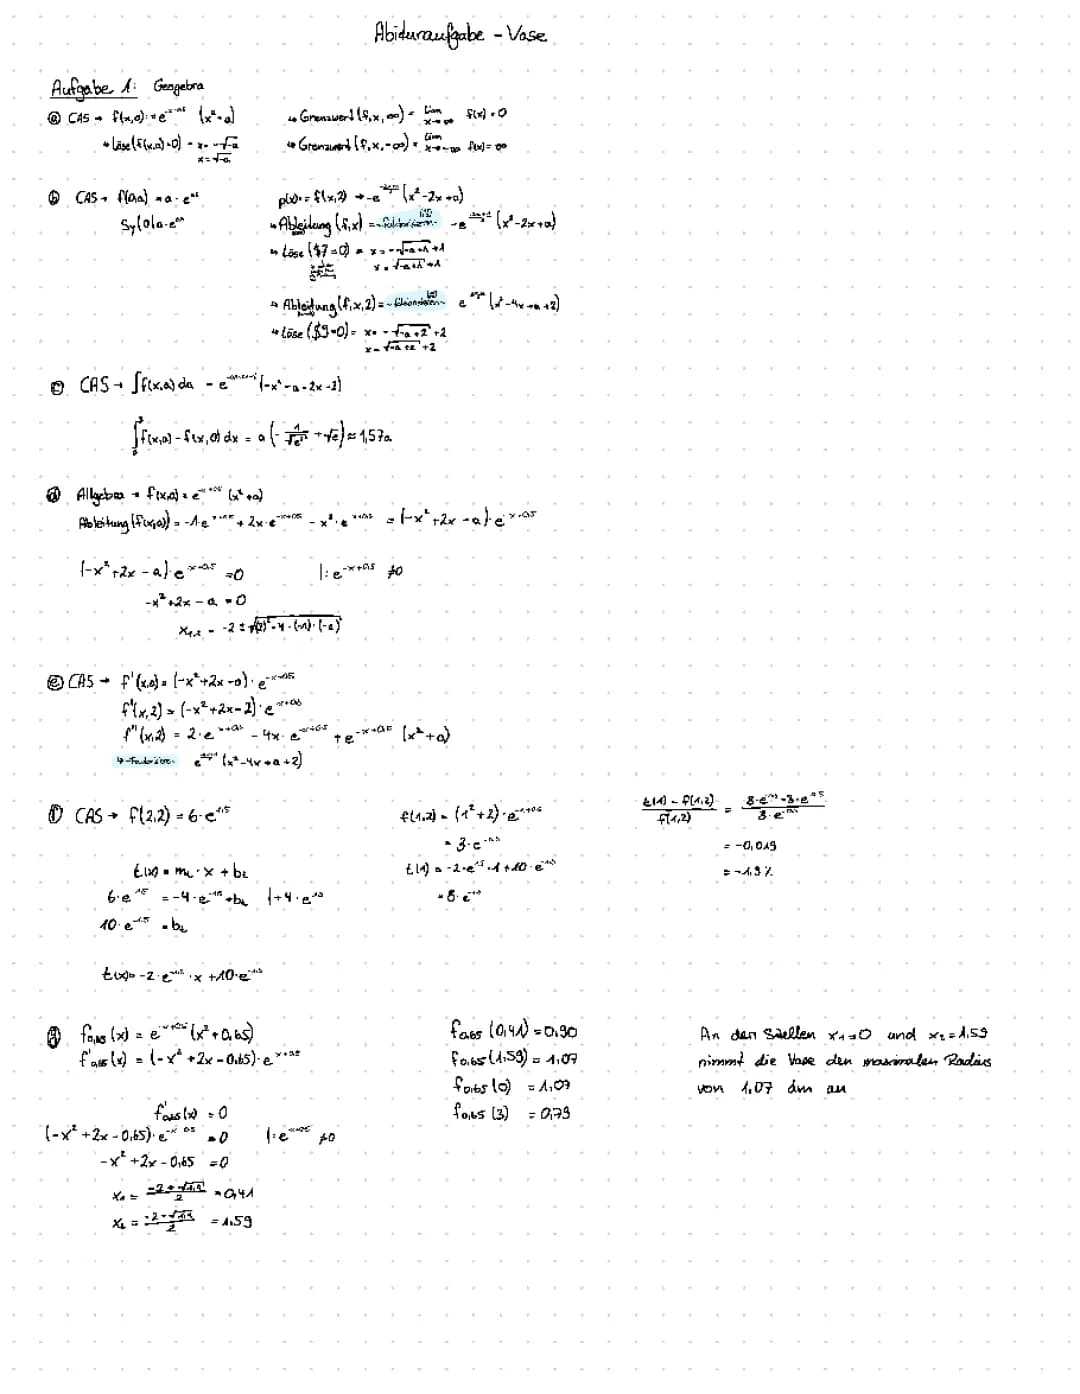 Abituraufgabe - Vase
Aufgabe 1: Geogebra
ⓐ CAS → f(x,a):=e^(-x+0,5) (x²+a)
↳ Löse(f(x,a)=0) = x=-√-a
x=√-a
↳ Grenzwert (f,x,∞) = lim x→∞ f(x)=0
↳ Grenzwert (f,x,-∞) = lim x→-∞ f(x)=∞
ⓑ CAS → f(0,a) = a·e^0,5
Sy(0|a·e^0,5)
p(x):= f(x,2) → -e (x²-2x+a)
↳ Ableitung (f,x) = -Faktorisieren- -e (x²-2x+a)
↳ Löse ($7=0) = x=-√-a+1+1
x=√-a+1+1
↳ Ableitung (f,x,2) = -Faktorisieren- e (x²-4x+a+2)
↳ Löse ($9=0) = x=-√-a+2+2
x=√-a+2+2
ⓒ CAS → ∫f(x,a) da = e (-x²-a-2x-2)
∫f(x,a)-f(x,0) dx = a(- 1/√e⁵ + √e) ≈ 1,57a
ⓓ Allgebra → f(x,a) = e^(-x+0,5) (x²+a)
Ableitung (f(x,a)) = -1·e^(-x+0,5) + 2x·e^(-x+0,5) - x²·e^(-x+0,5) = (-x²+2x-a)·e^(-x+0,5)
(-x²+2x-a)·e^(-x+0,5) =0 |:e^(-x+0,5) ≠0
-x²+2x-a=0
x₁,₂ = -2±√(2)²-4·(-1)·(-a)
ⓔ CAS → f'(x,a) = (-x²+2x-a)·e^(-x+0,5)
f'(x,2) = (-x²+2x-2)·e^(-x+0,5)
f''(x,2) = 2·e^(-x+0,5) - 4x·e^(-x+0,5) + e^(-x+0,5) (x²+a)
↳ -Faktorisieren- e (x²-4x+a+2)
ⓕ CAS → f(2,2) = 6·e^-1,5
t(x) = m·x + b
6·e^-1,5 = -4·e^-1,5 + b |+4·e^-1,5
10·e^-1,5 = b
t(x)= -2·e^-1,5·x +10·e^-1,5
f(1,2) = (1²+2)·e^(-1+0,5)
= 3·e^-0,5
t(1) = -2·e^-1,5·1+10·e^-1,5
= 8·e^-1,5
t(1) - f(1,2) / f(1,2) = 8·e^-1,5 - 3·e^-0,5 / 3·e^-0,5
= -0,019
= -1,9%
ⓖ f0,65(x) = e^(-x+0,5) (x²+0,65)
f'0,65(x) = (-x²+2x-0,65)·e^(-x+0,5)
f'0,65(x) =0
(-x²+2x-0,65)·e^(-x+0,5) =0 |:e^(-x+0,5) ≠0
-x²+2x-0,65 =0
x₁ = -2+√1,4 / 2 = 0,41
x₂ = -2-√1,4 / 2 = 1,59
f0,65 (0,41) = 0,90
f0,65 (1,59) = 1,07
f0,65 (0) = 1,07
f0,65 (3) = 0,79
An den Stellen x₁=0 und x₂=1,59
nimmt die Vase den maximalen Radius
von 1,07 dm an